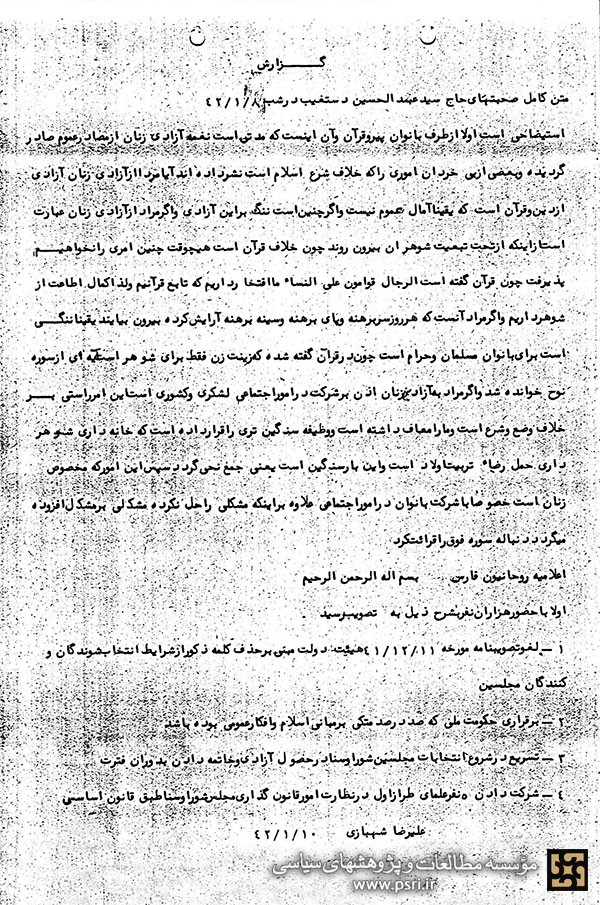 گزارش
متن کامل صحبتهای حاج سید عبد الحسین دستغیب در شب ۴۲/۱/۸
استیضاحی است اولا از طرف بانوان پیرو قرآن وآن اینست که مدتی است نغمه آزادی زنان از مصادر عموم صادر
گردیده وبعضی از بی خردان اموری را که خلاف شرع اسلام است نشر داده اند آیا مراد از آزادی زنان آزادی
از دین وقرآن است که یقینا آمال عموم نیست واگر چنین است ننگ بر این آزادی واگر مراد از آزادی زنان عبارت
است از اینکه از تحت تبعیت شوهر ان بیرون روند چون خلاف قرآن است هیچوقت چنین امری را نخواهیم
پذیرفت چون قرآن گفته است الرجال قوامون علی النساء ما افتخار داریم که تابع قرآنیم ولذا کمال اطاعت از
شوهر داریم واگر مراد آنست که هر روز سر برهنه وپای برهنه وسینه برهنه آرایش کرده بیرون بیایند یقینا ننگی
است برای بانوان مسلمان وحرام است چون در قرآن گفته شده که زینت زن فقط برای شوهر است آیه ای از سوره
نوح خوانده شد واگر مراد به آزادی زنان اذن بر شرکت در امور اجتماعی لشکری وکشوری است این امر راستی بر
خلاف وضع وشرع است وما را معاف داشته است ووظیفه سنگین تری را قرار داده است که خانه داری شوهر
داری حمل رضاء تربیت اولاد است واین بار سنگین است یعنی جمع نمی گردد سپس این امور که مخصوص
زنان است خصوصا با شرکت بانوان در امور اجتماعی علاوه بر اینکه مشکلی را حل نکرده مشکلی بر مشکل افزوده
میگردد دنباله سوره فوق را قرائت کرد
اعلامیه روحانیون فارس بسم اله الرحمن الرحیم
اولا با حضور هزاران نفر بشرح ذیل به تصویب رسید
۱ – لغو تصویبنامه مورخه ۴۱/۱۲/۱۱ هیئت دولت مبنی بر حذف کلمه ذکور از شرایط انتخاب شوندگان و
کنندگان مجلسین
۲ – برقراری حکومت ملی که صد در صد متکی بر مبانی اسلام وافکار عمومی بوده باشد
۳ – تسریع در شروع انتخابات مجلسین شورا وسنا در حصول آزادی وخاتمه دادن بدوران فترت
۴ – شرکت دادن ۵ نفر علمای طراز اول در نظارت امور قانون گذاری مجلس شورا وسنا طبق قانون اساسی
علیرضا شهبازی ۴۲/۱/۱۰
مؤسسه مطالعات و پژوهشهای سیاسی
www.psri.ir